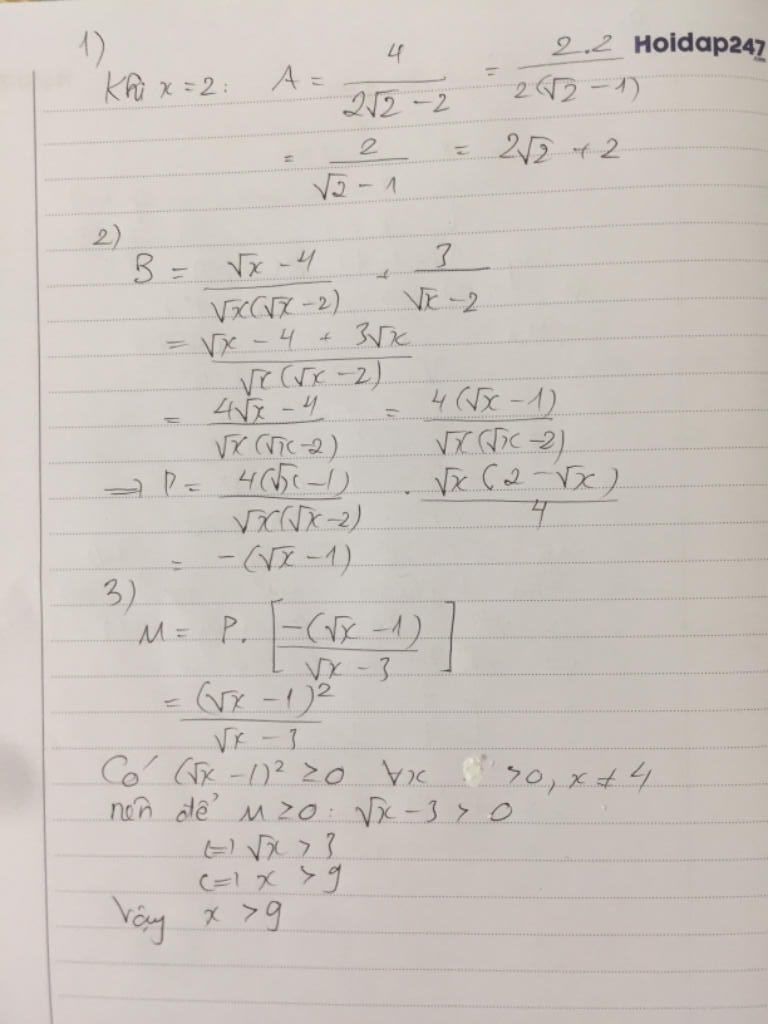 Hoidap247.com
1)
Khi x = 2: A = 4 / (2√2 - 2) = 2.2 / (2(√2 - 1))
= 2 / (√2 - 1) = 2√2 + 2
2)
B = (√x - 4) / (√x(√x - 2)) + 3 / (√x - 2)
= (√x - 4 + 3√x) / (√x(√x - 2))
= (4√x - 4) / (√x(√x - 2)) = 4(√x - 1) / (√x(√x - 2))
=> P = 4(√x - 1) / (√x(√x - 2)) . √x(2 - √x) / 4
= -(√x - 1)
3)
M = P. [-(√x - 1) / (√x - 3)]
= (√x - 1)² / (√x - 3)
Có (√x - 1)² ≥ 0 ∀x > 0, x ≠ 4
nên để M ≥ 0: √x - 3 > 0
<=> √x > 3
<=> x > 9
Vậy x > 9